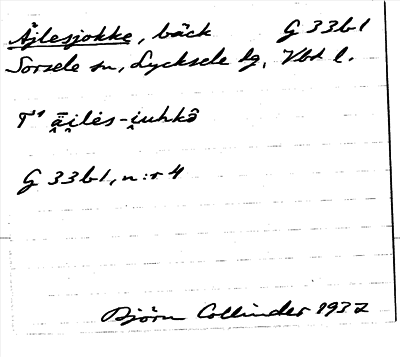 Äjlesjokke, bäck G 33b1
Sorsele sn, Lycksele lg, Vbt l.
T¹ ä̯i̯lės-i̯uhkå̂
G 33b1, n:r 4
Björn Collinder 1937